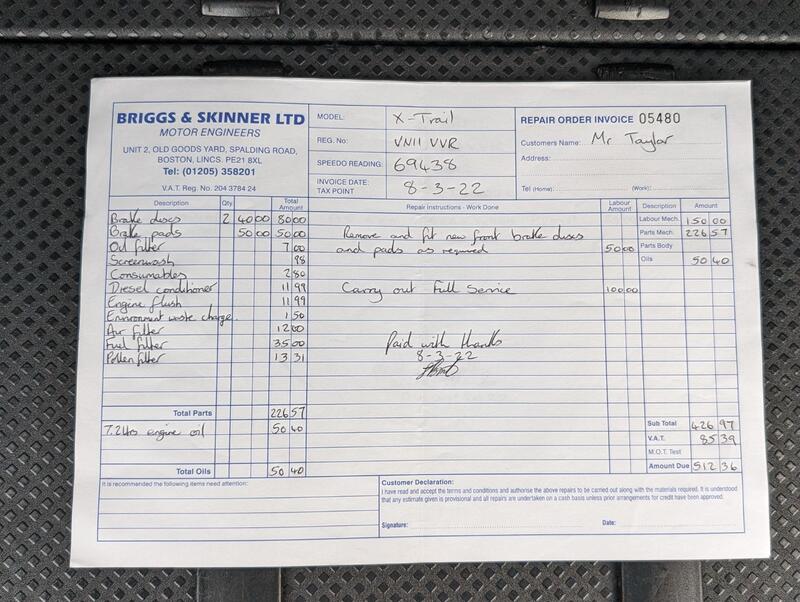 BRIGGS & SKINNER LTD
MOTOR ENGINEERS
UNIT 2, OLD GOODS YARD, SPALDING ROAD,
BOSTON, LINCS. PE21 8XL
Tel: (01205) 358201
V.A.T. Reg. No. 204 3784 24
MODEL: X-Trail
REG. No: VN11 VVR
SPEEDO READING: 69438
INVOICE DATE: TAX POINT 8-3-22
REPAIR ORDER INVOICE 05480
Customers Name: Mr Taylor
Address:
Tel (Home): (Work):
Description Qty. Total Amount
Brake discs 2 40 00 80 00
Brake pads 50 00 50 00
Oil filter 7 00
Screenwash 98
Consumables 2 80
Diesel conditioner 11 99
Engine flush 11 99
Environment waste charge. 1 50
Air filter 12 00
Fuel filter 35 00
Pollen filter 13 31
Total Parts 226 57
7.2 ltrs engine oil 50 40
Total Oils 50 40
Repair Instructions - Work Done Labour Amount
Remove and fit new front brake discs
and pads as required 50 00
Carry out Full Service 100 00
Paid with thanks
8-3-22
Description Amount
Labour Mech. 150 00
Parts Mech. 226 57
Parts Body
Oils 50 40
Sub Total 426 97
V.A.T. 85 39
M.O.T. Test
Amount Due 512 36
It is recommended the following items need attention:
Customer Declaration:
I have read and accept the terms and conditions and authorise the above repairs to be carried out along with the materials required. It is understood
that any estimate given is provisional and all repairs are undertaken on a cash basis unless prior arrangements for credit have been approved.
Signature: Date: